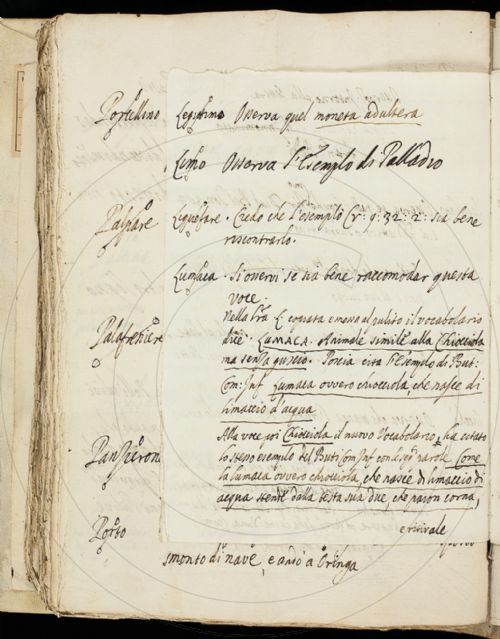 Porcellino
Legitimo Osserva quel moneta adultera
Limo Osserva l'Esempio di Palladio
Palpare
Liquefare. Credo che l'esempio Cr: 9: 32: 2: sia bene
riscontrarlo.
Lumaca. Si osservi se sia bene raccomodar questa
voce.
Nella E copiata e messa al pulito il vocabolario
Palafreniere
dice. LUMACA. Animale simile alla Chiocciola
ma senza guscio. Poscia cita l'Esempio di But:
Com: Inf Lumaca ovvero chiocciola, che nasce di
limaccio d'acqua
Alla voce poi Chiocciola il nuovo Vocabolario, ha citato
lo stesso esempio del Buti Com Inf con parole. Come
la lumaca ovvero chiocciola, che nasce di limaccio di
acqua stende dalla testa sua due, che paion corna,
e ritirale
Porto
smontò di nave, e andò a